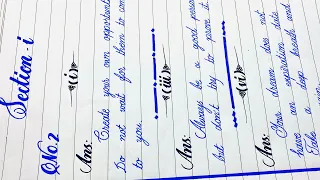 Section-i
QNo.2
(i)
Ans:
Create your own opportunit
Do not wait for them to com
to you.
(iii)
Ans:
Always be a good person
but don't try to prove it.
(v)
Ans:
Your dream does not
have an expiration date
Take a deep breath and